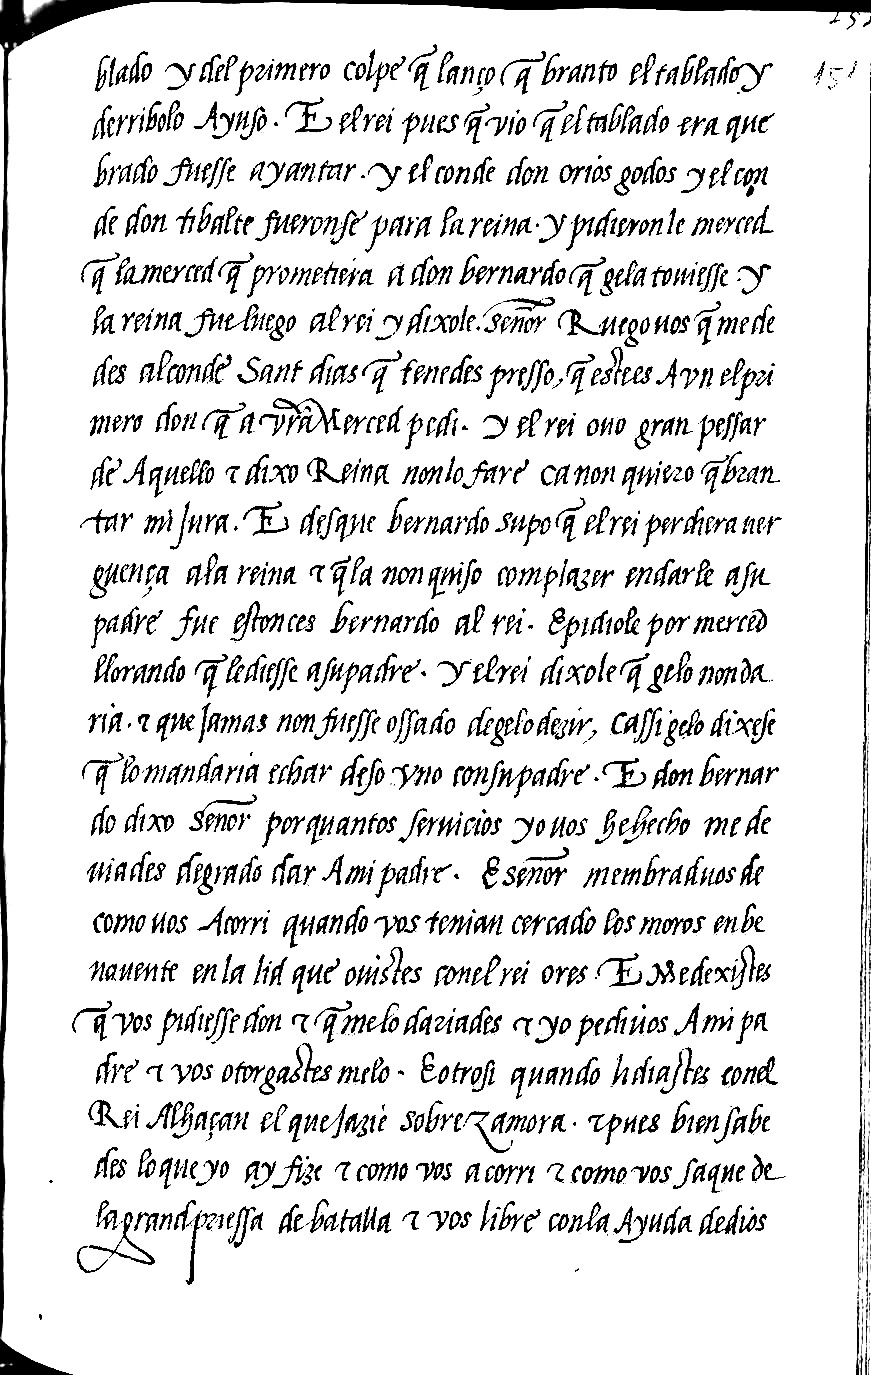 151
blado y del primero colpe q̃ lanço q̃ branto el tablado y
derribolo Ayuso. E el rei pues q̃ vio q̃ el tablado era que
brado fuesse ayantar. y el conde don orios godos y el con
de don tibalte fueronse para la reina. y pidieronle merced
q̃ la merced q̃ prometiera a don bernardo q̃ gela touiesse y
la reina fue luego al rei y dixole. señor Ruego uos q̃ me de
des al conde Sant dias q̃ tenedes presso, q̃ este es Avn el pri
mero don q̃ a vr̃a Merced pedi. y el rei ouo gran pessar
de Aquello τ dixo Reina non lo fare ca non quiero q̃bran
tar mi Jura. E desque bernardo supo q̃ el rei perdiera uer
guença ala reina τ q̃ la non quiso complazer en darle a su
padre fue estonces bernardo al rei. E pidiole por merced
llorando q̃ le diesse a su padre. y el rei dixole q̃ gelo non da
ria. τ que Jamas non fuesse ossado de gelo dezir, ca ssi gelo dixese
q̃ lo mandaria echar deso vno con su padre. E don bernar
do dixo señor por quantos seruicios yo uos he hecho me de
uiades degrado dar A mi padre. E señor membraduos de
como uos Acorri quando vos tenian cercado los moros en be
nauente en la lid que ouistes con el rei ores. E Me dexistes
q̃ vos pidiesse don τ q̃ me lo dariades τ yo pedi uos A mi pa
dre τ vos otorgastes melo. E otrosi quando lidiastes con el
Rei Alhaçan el que Jazie sobre zamora. τ pues bien sabe
des lo que yo ay fize τ como vos acorri τ como vos saque de
la grand priessa de batalla τ vos libre con la Ayuda de dios